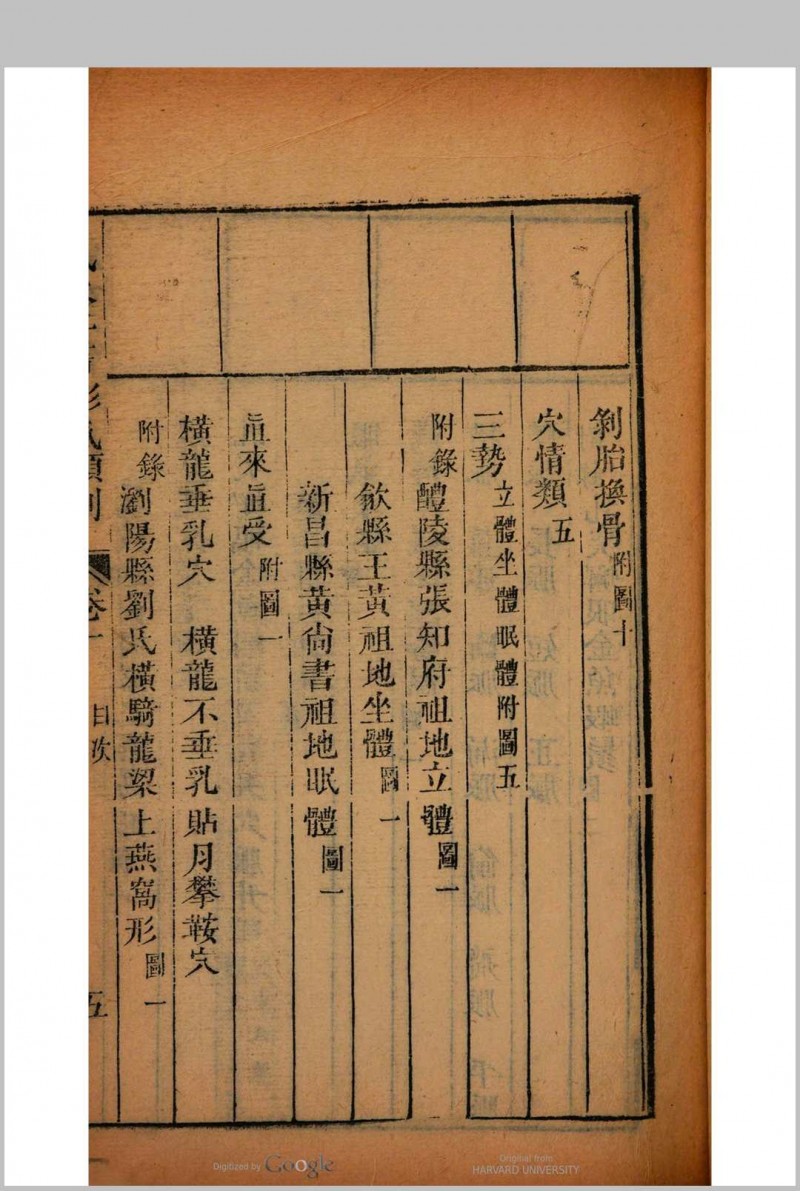 剝胎換骨附圖十
穴情類五
三勢立體坐體眠體附圖五
附錄醴陵縣張知府祖地立體圖一
歙縣王黃祖地坐體圖一
新昌縣黃尙書祖地眠體圖一
直來直受附圖一
橫龍垂乳穴 橫龍不垂乳貼月攀鞍穴
附錄瀏陽縣劉氏橫騎龍梁上燕窩形圖一
卷一 目次 五
Digitized by Google
Original from
HARVARD UNIVERSITY